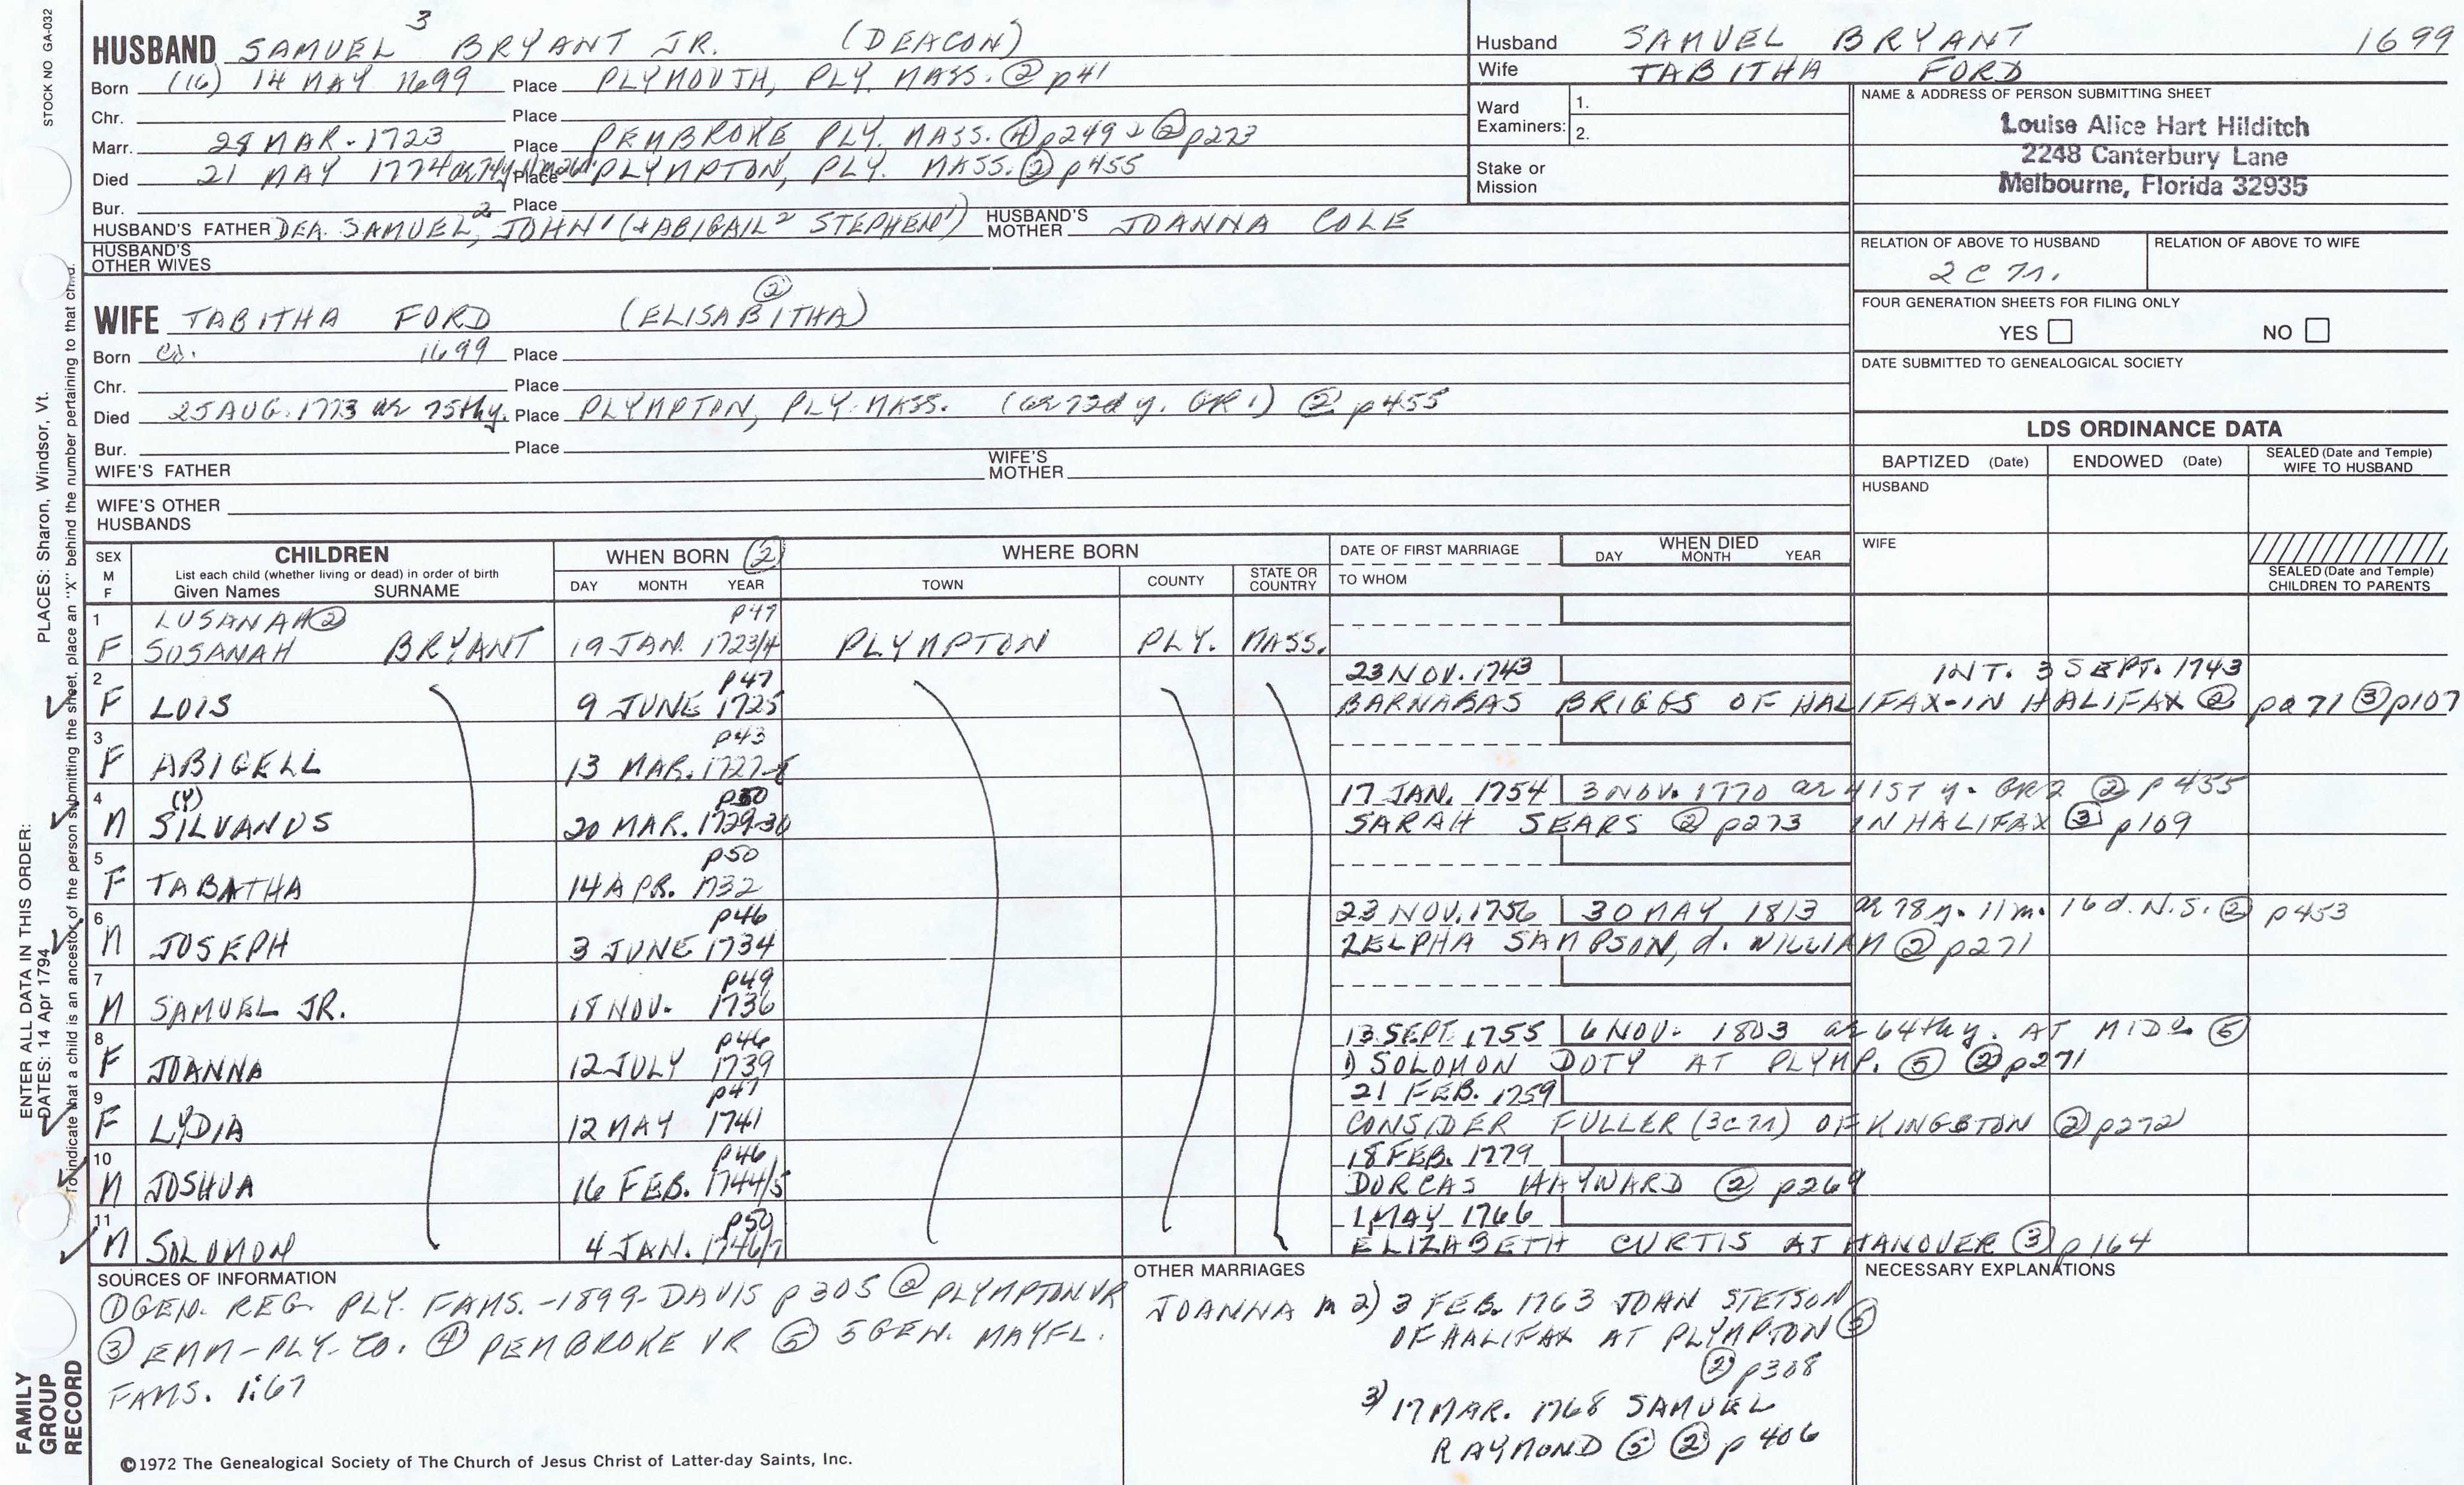 STOCK NO GA-032
3
HUSBAND SAMUEL BRYANT JR. (DEACON)
Born (16) 14 MAY 1699 Place PLYMOUTH, PLY. MASS. ② p41
Chr. Place
Marr. 28 MAR. 1723 Place PEMBROKE PLY. MASS. ④ p249 & ② p273
Died 21 MAY 1774 Place PLYMPTON, PLY. MASS. ② p455
Bur. Place
HUSBAND'S FATHER DEA. SAMUEL², JOHN¹ (+ABIGAIL² STEPHEN¹) HUSBAND'S MOTHER JOANNA COLE
HUSBAND'S OTHER WIVES
Husband SAMUEL BRYANT 1699
Wife TABITHA FORD
Ward Examiners: 1.
2.
Stake or Mission
NAME & ADDRESS OF PERSON SUBMITTING SHEET
Louise Alice Hart Hilditch
2248 Canterbury Lane
Melbourne, Florida 32935
RELATION OF ABOVE TO HUSBAND RELATION OF ABOVE TO WIFE
FOUR GENERATION SHEETS FOR FILING ONLY
YES NO
DATE SUBMITTED TO GENEALOGICAL SOCIETY
②
WIFE TABITHA FORD (ELISABITHA)
Born Ca. 1699 Place
Chr. Place
Died 25 AUG. 1773 ae 75thy. Place PLYMPTON, PLY. MASS. (ae 72d y. GR1) ② p455
Bur. Place
WIFE'S FATHER WIFE'S MOTHER
WIFE'S OTHER HUSBANDS
LDS ORDINANCE DATA
BAPTIZED (Date) ENDOWED (Date) SEALED (Date and Temple) WIFE TO HUSBAND
HUSBAND
WIFE
SEALED (Date and Temple) CHILDREN TO PARENTS
SEX M F CHILDREN WHEN BORN ② WHERE BORN DATE OF FIRST MARRIAGE WHEN DIED
List each child (whether living or dead) in order of birth
Given Names SURNAME DAY MONTH YEAR TOWN COUNTY STATE OR COUNTRY TO WHOM DAY MONTH YEAR
1 LUSANAH ② p47
F SUSANAH BRYANT 19 JAN. 1723/4 PLYMPTON PLY. MASS.
2 p47 23 NOV. 1743 INT. 3 SEPT. 1743
F LOIS 9 JUNE 1725 BARNABAS BRIGGS OF HALIFAX-IN HALIFAX ② p271 ③ p107
3 p43
F ABIGELL 13 MAR. 1727-8
4 (Y) p50 17 JAN. 1754 3 NOV. 1770 ae 41ST y. GR2 ② p455
M SILVANUS 20 MAR. 1729-30 SARAH SEARS ② p273 IN HALIFAX ③ p109
5 p50
F TABATHA 14 APR. 1732
6 p46 23 NOV. 1756 30 MAY 1813 ae 78 y. 11 m. 16 d. N.S. ② p453
M JOSEPH 3 JUNE 1734 ZELPHA SAMPSON, d. WILLIAM ② p271
7 p49
M SAMUEL JR. 18 NOV. 1736
8 p46 13 SEPT. 1755 6 NOV. 1803 ae 64thy. AT MIDD. ⑤
F JOANNA 12 JULY 1739 1) SOLOMON DOTY AT PLYMP. ⑤ ② p271
9 p47 21 FEB. 1759
F LYDIA 12 MAY 1741 CONSIDER FULLER (3c7r) OF KINGSTON ② p272
10 p46 18 FEB. 1779
M JOSHUA 16 FEB. 1744/5 DORCAS HAYWARD ② p269
11 p50 1 MAY 1766
M SOLOMON 4 JAN. 1746/7 ELIZABETH CURTIS AT HANOVER ③ p164
SOURCES OF INFORMATION
① GEN. REG. PLY. FAMS. -1899- DAVIS p305 ② PLYMPTON VR
③ EMM-PLY-CO. ④ PEMBROKE VR ⑤ 5 GEN. MAYFL.
FAMS. 1:67
©1972 The Genealogical Society of The Church of Jesus Christ of Latter-day Saints, Inc.
OTHER MARRIAGES
JOANNA m 2) 3 FEB. 1763 JOHN STETSON
OF HALIFAX AT PLYMPTON ⑤
② p388
3) 17 MAR. 1768 SAMUEL
RAYMOND ⑤ ② p406
NECESSARY EXPLANATIONS
ENTER ALL DATA IN THIS ORDER:
DATES: 14 Apr 1794 PLACES: Sharon, Windsor, Vt.
To indicate that a child is an ancestor of the person submitting the sheet, place an "X" behind the number pertaining to that child.
FAMILY GROUP RECORD